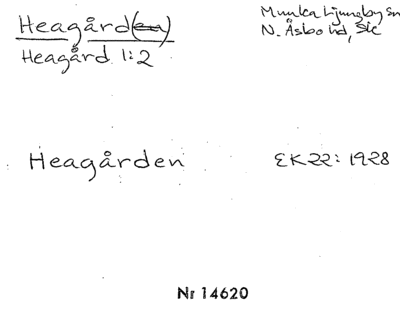 Heagård(en)
Munka Ljungby sn
Heagård 1:2
N. Åsbo hd, Sk
Heagården
EK22: 1928
Nr 14620